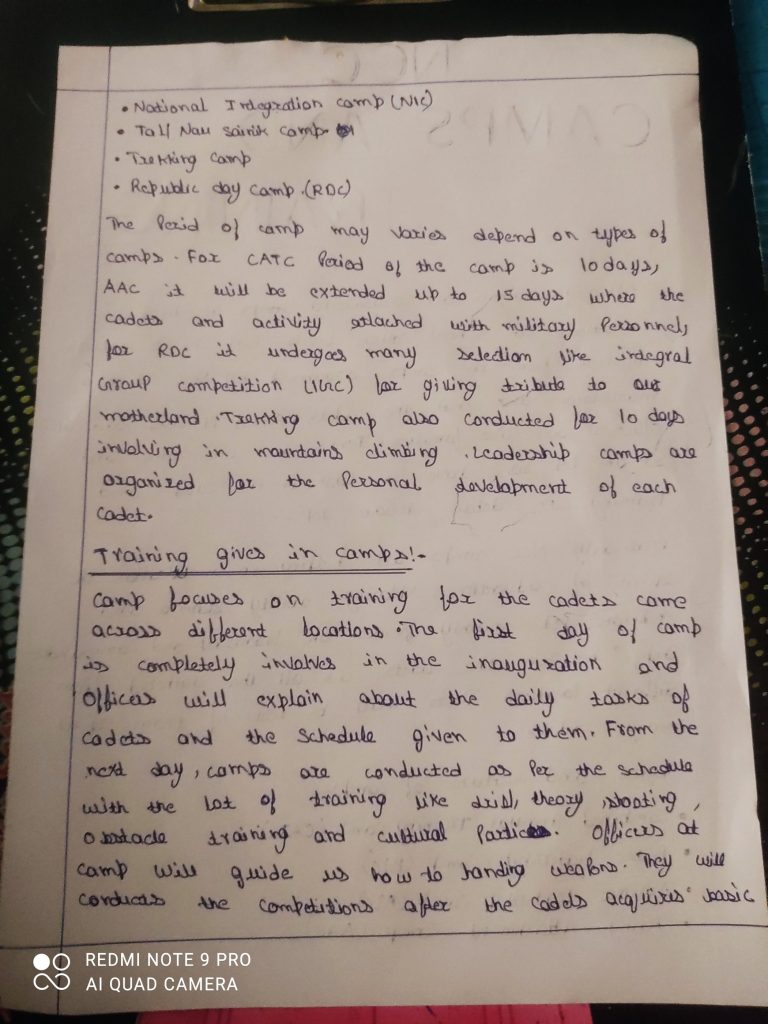 • National Integration camp (NIC)
• Tal/ Nau Sainik camp.
• Trekking Camp
• Republic day Camp.(RDC)
The Period of camp may varies depend on types of
camps. For CATC Period of the camp is 10 days,
AAC it will be extended up to 15 days where the
cadets and activity attached with military Personnel,
for RDC it undergoes many selection like integral
Group competition (IGC) for giving tribute to our
motherland. Trekking camp also conducted for 10 days
involving in mountains climbing. Leadership camps are
organized for the Personal development of each
Cadet.
Training gives in camps:-
Camp focuses on training for the cadets came
across different locations. The first day of camp
is completely involves in the inauguration and
Officers will explain about the daily tasks of
cadets and the schedule given to them. From the
next day, camps are conducted as Per the schedule
with the lot of training like drill, theory, shooting,
obstacle training and cultural. Officers at
camp will guide us how to handing weapons. They will
conducts the competitions after the cadets acquires basic
REDMI NOTE 9 PRO
AI QUAD CAMERA